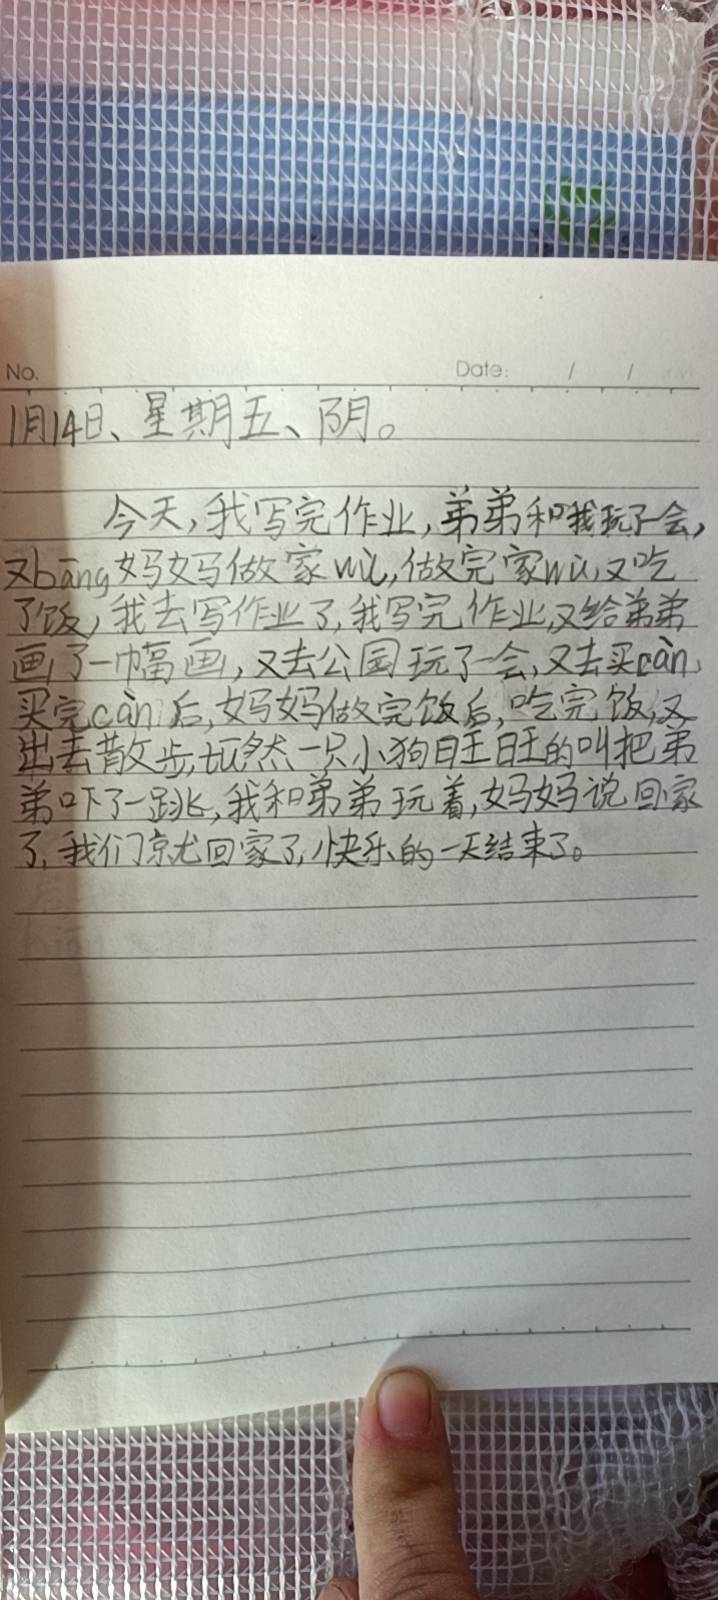 No.
Date: / /
1月14日、星期五、阴。
今天,我写完作业,弟弟和我玩了一会,
又bāng妈妈做家wù,做完家wù,又吃
了饭,我去写作业了,我写完作业,又给弟弟
画了一幅画,又去公园玩了一会,又去买càn,
买完càn后,妈妈做完饭后,吃完饭,又
出去散步,然一只小狗旺旺的叫把弟
弟吓了一跳,我和弟弟玩着,妈妈说回家
了,我们就回家了,快乐的一天结束了。